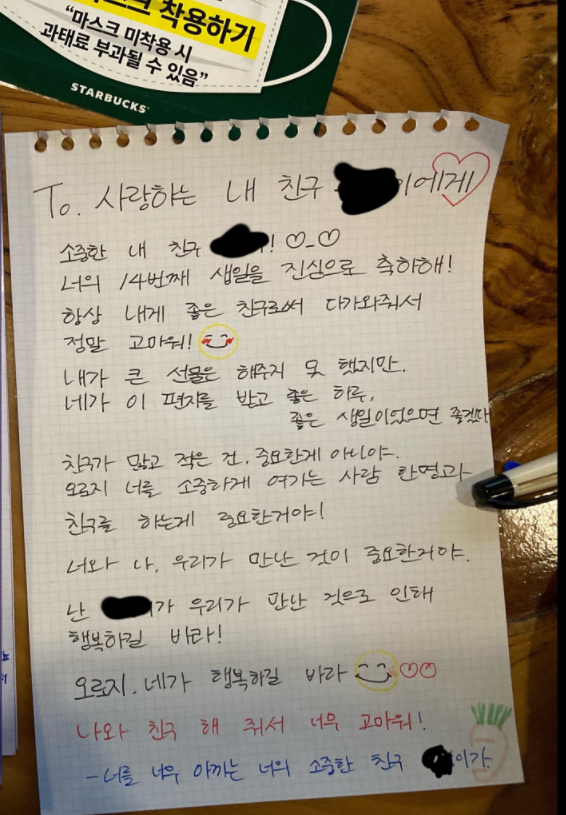 마스크 착용하기
“마스크 미착용 시
과태료 부과될 수 있음”
STARBUCKS
To. 사랑하는 내 친구 이에게
소중한 내 친구 !
너의 14번째 생일을 진심으로 축하해!
항상 내게 좋은 친구로써 다가와줘서
정말 고마워!
내가 큰 선물은 해주지 못 했지만.
네가 이 편지를 받고 좋은 하루,
좋은 생일이었으면 좋겠다
친구가 많고 적은 건, 중요한게 아니야.
오로지 너를 소중하게 여기는 사람 한명과
친구를 하는게 중요한거야!
너와 나, 우리가 만난 것이 중요한거야.
난 가 우리가 만난 것으로 인해
행복하길 바라!
오로지. 네가 행복하길 바라
나와 친구 해 줘서 너무 고마워!
-너를 너무 아끼는 너의 소중한 친구 이가